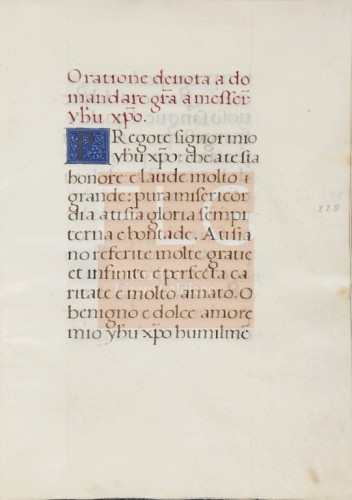 Oratione deuota a do
mandare gr̃a a messer
yhu xp̃o.
PRegote signor mio
yhu xp̃o: che a te sia
honore e laude molto
grande: pura misericor
dia a ti sia gloria sempi
terna e bontade. A ti sia
no referite molte gratie
et infinite e perfecta ca
ritate e molto amato. O
benigno e dolce amore
mio yhu xp̃o humilme
228
FLG